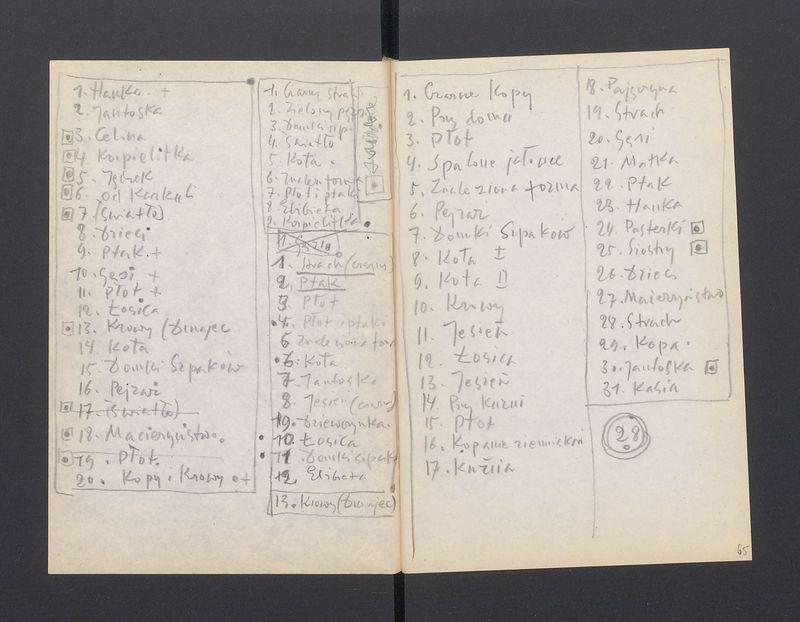 1. Hanka. +
2. Jantoska
3. Celina
4. Korpielitka
5. Jędrek
6. od Karkuli
7 (Światło)
8. Dzieci
9. Ptak. +
10. Gęsi +
11. Płot +
12. Łosica
13. Krowy (Dunajec
14 Kota
15. Domki Szpaków
16. Pejzaż
17. (Światło)
18. Macierzyństwo.
19. Płot.
20. Kopy i Krowy • +
1. Czarny strach
2. Zielony
3. Domki szp.
4. Światło
5. Kota.
6. Znalez. forma
7. Płot i ptaki
8. Elżbieta
9. Korpielitka
1. Strach (czarny)
2. Ptak
3 Płot
4. Płot i ptaki
5 Znaleziona form
6. Kota
7 Jantoska
8. Jesień (czarny)
9. Dziewczynka.
10. Łosica
11. Domki szpak
12. Elżbieta
13. Krowy (Dunajec)
1. Czarne Kopy
2. Przy domu
3. Płot
4. Spalone jałowce
5. Znaleziona forma
6. Pejzaż
7. Domki Szpaków
8. Kota I
9. Kota II
10. Krowy
11. Jesień
12. Łosica
13. Jesień
14. Przy kuźni
15. Płot
16. Kopanie ziemniaków
17. Kuźnia
18.
19. Strach
20. Gęsi
21. Matka
22. Ptak
23. Hanka
24. Pasterki
25. Siostry
26. Dzieci
27. Macierzyństwo
28. Strach
29. Kopa.
30. Jantoska
31. Kasia
28
65